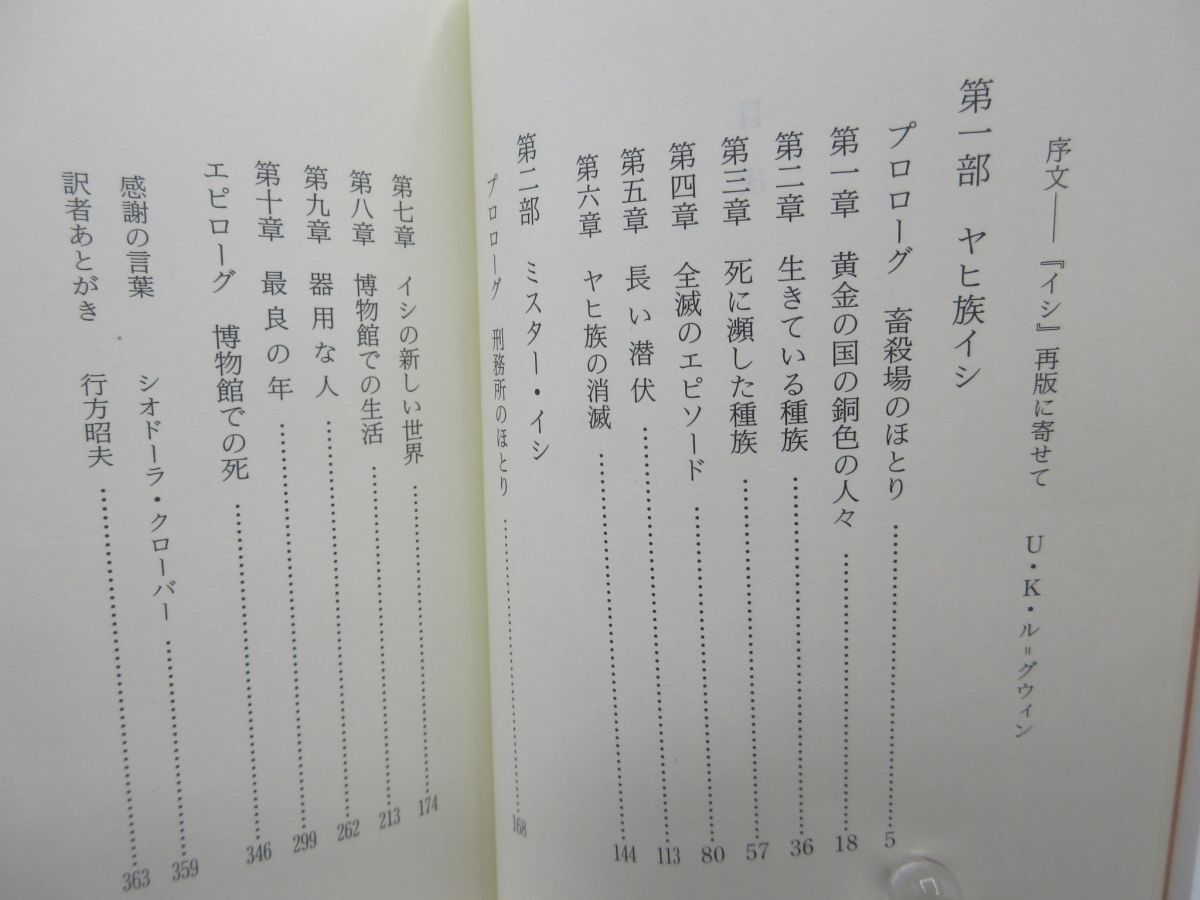 序文――『イシ』再版に寄せて　U・K・ル＝グウィン
第一部　ヤヒ族イシ
プロローグ　畜殺場のほとり……………5
第一章　黄金の国の銅色の人々……………18
第二章　生きている種族……………36
第三章　死に瀕した種族……………57
第四章　全滅のエピソード……………80
第五章　長い潜伏……………113
第六章　ヤヒ族の消滅……………144
第二部　ミスター・イシ
プロローグ　刑務所のほとり……………168
第七章　イシの新しい世界……………174
第八章　博物館での生活……………213
第九章　器用な人……………262
第十章　最良の年……………299
エピローグ　博物館での死……………346
感謝の言葉　シオドーラ・クローバー……………359
訳者あとがき　行方昭夫……………363